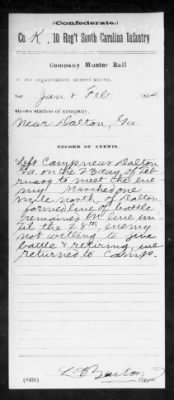 (Confederate.)
Co. K, 10 Reg't South Carolina Infantry
Company Muster Roll
of the organization named above,
for Jan & Feb 1864.
Station of company,
Near Dalton, Ga
RECORD OF EVENTS.
Left Camp near Dalton
Ga. on the 23 day of Feb
ruary to meet the ene
my. Marched one
mile north of Dalton
formed line of battle
remained in line un
til the 28th, enemy
not willing to give
battle & retiring, we
returned to camp.
Copyist.